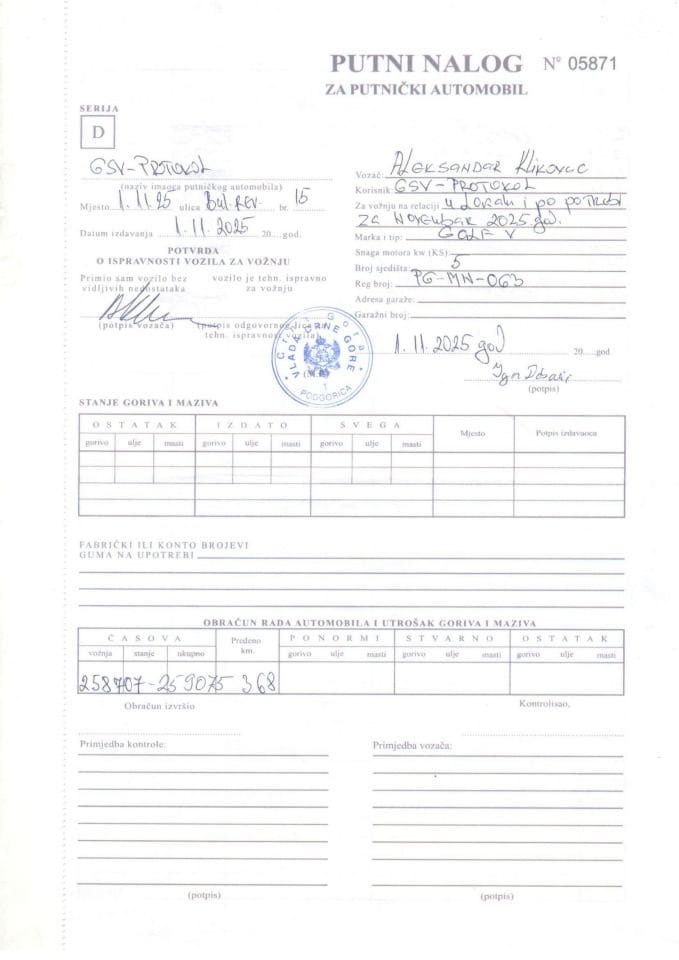 PUTNI NALOG Nº 05871
ZA PUTNIČKI AUTOMOBIL
SERIJA
D
GSV-PROTOKOL
(naziv imaoca putničkog automobila)
Mjesto 1.11.25 ulica Bul.REV. br. 15
Datum izdavanja 1.11.2025 20....god.
POTVRDA
O ISPRAVNOSTI VOZILA ZA VOŽNJU
Primio sam vozilo bez vidljivih nedostataka
vozilo je tehn. ispravno za vožnju
(potpis vozača)
(potpis odgovornog lica za tehn. ispravnost vozila)
Vozač: ALEKSANDAR KLIKOVAC
Korisnik: GSV-PROTOKOL
Za vožnju na relaciji u lokalu i po potrebi
ZA NOVEMBAR 2025.god.
Marka i tip: GOLF V
Snaga motora kw (KS)
Broj sjedišta: 5
Reg broj: PG-MN-063
Adresa garaže:
Garažni broj:
1.11.2025 god 20....god
(potpis)
Crna Gora
VLADA CRNE GORE
(M.P.)
1
PODGORICA
STANJE GORIVA I MAZIVA
OSTATAK IZDATO SVEGA Mjesto Potpis izdavaoca
gorivo ulje masti gorivo ulje masti gorivo ulje masti
FABRIČKI ILI KONTO BROJEVI
GUMA NA UPOTREBI
OBRAČUN RADA AUTOMOBILA I UTROŠAK GORIVA I MAZIVA
ČASOVA Pređeno km. PO NORMI STVARNO OSTATAK
vožnja stanje ukupno gorivo ulje masti gorivo ulje masti gorivo ulje masti
258707-259075 368
Obračun izvršio Kontrolisao,
Primjedba kontrole: Primjedba vozača:
(potpis) (potpis)